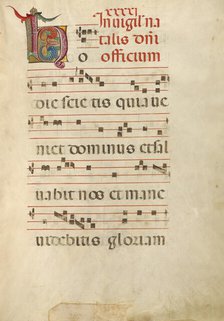 xxxxj
In vigil na
talis dñi
H o officium
die scie tis quia ue
niet dominus et sal
uabit nos et mane
uidebitis gloriam